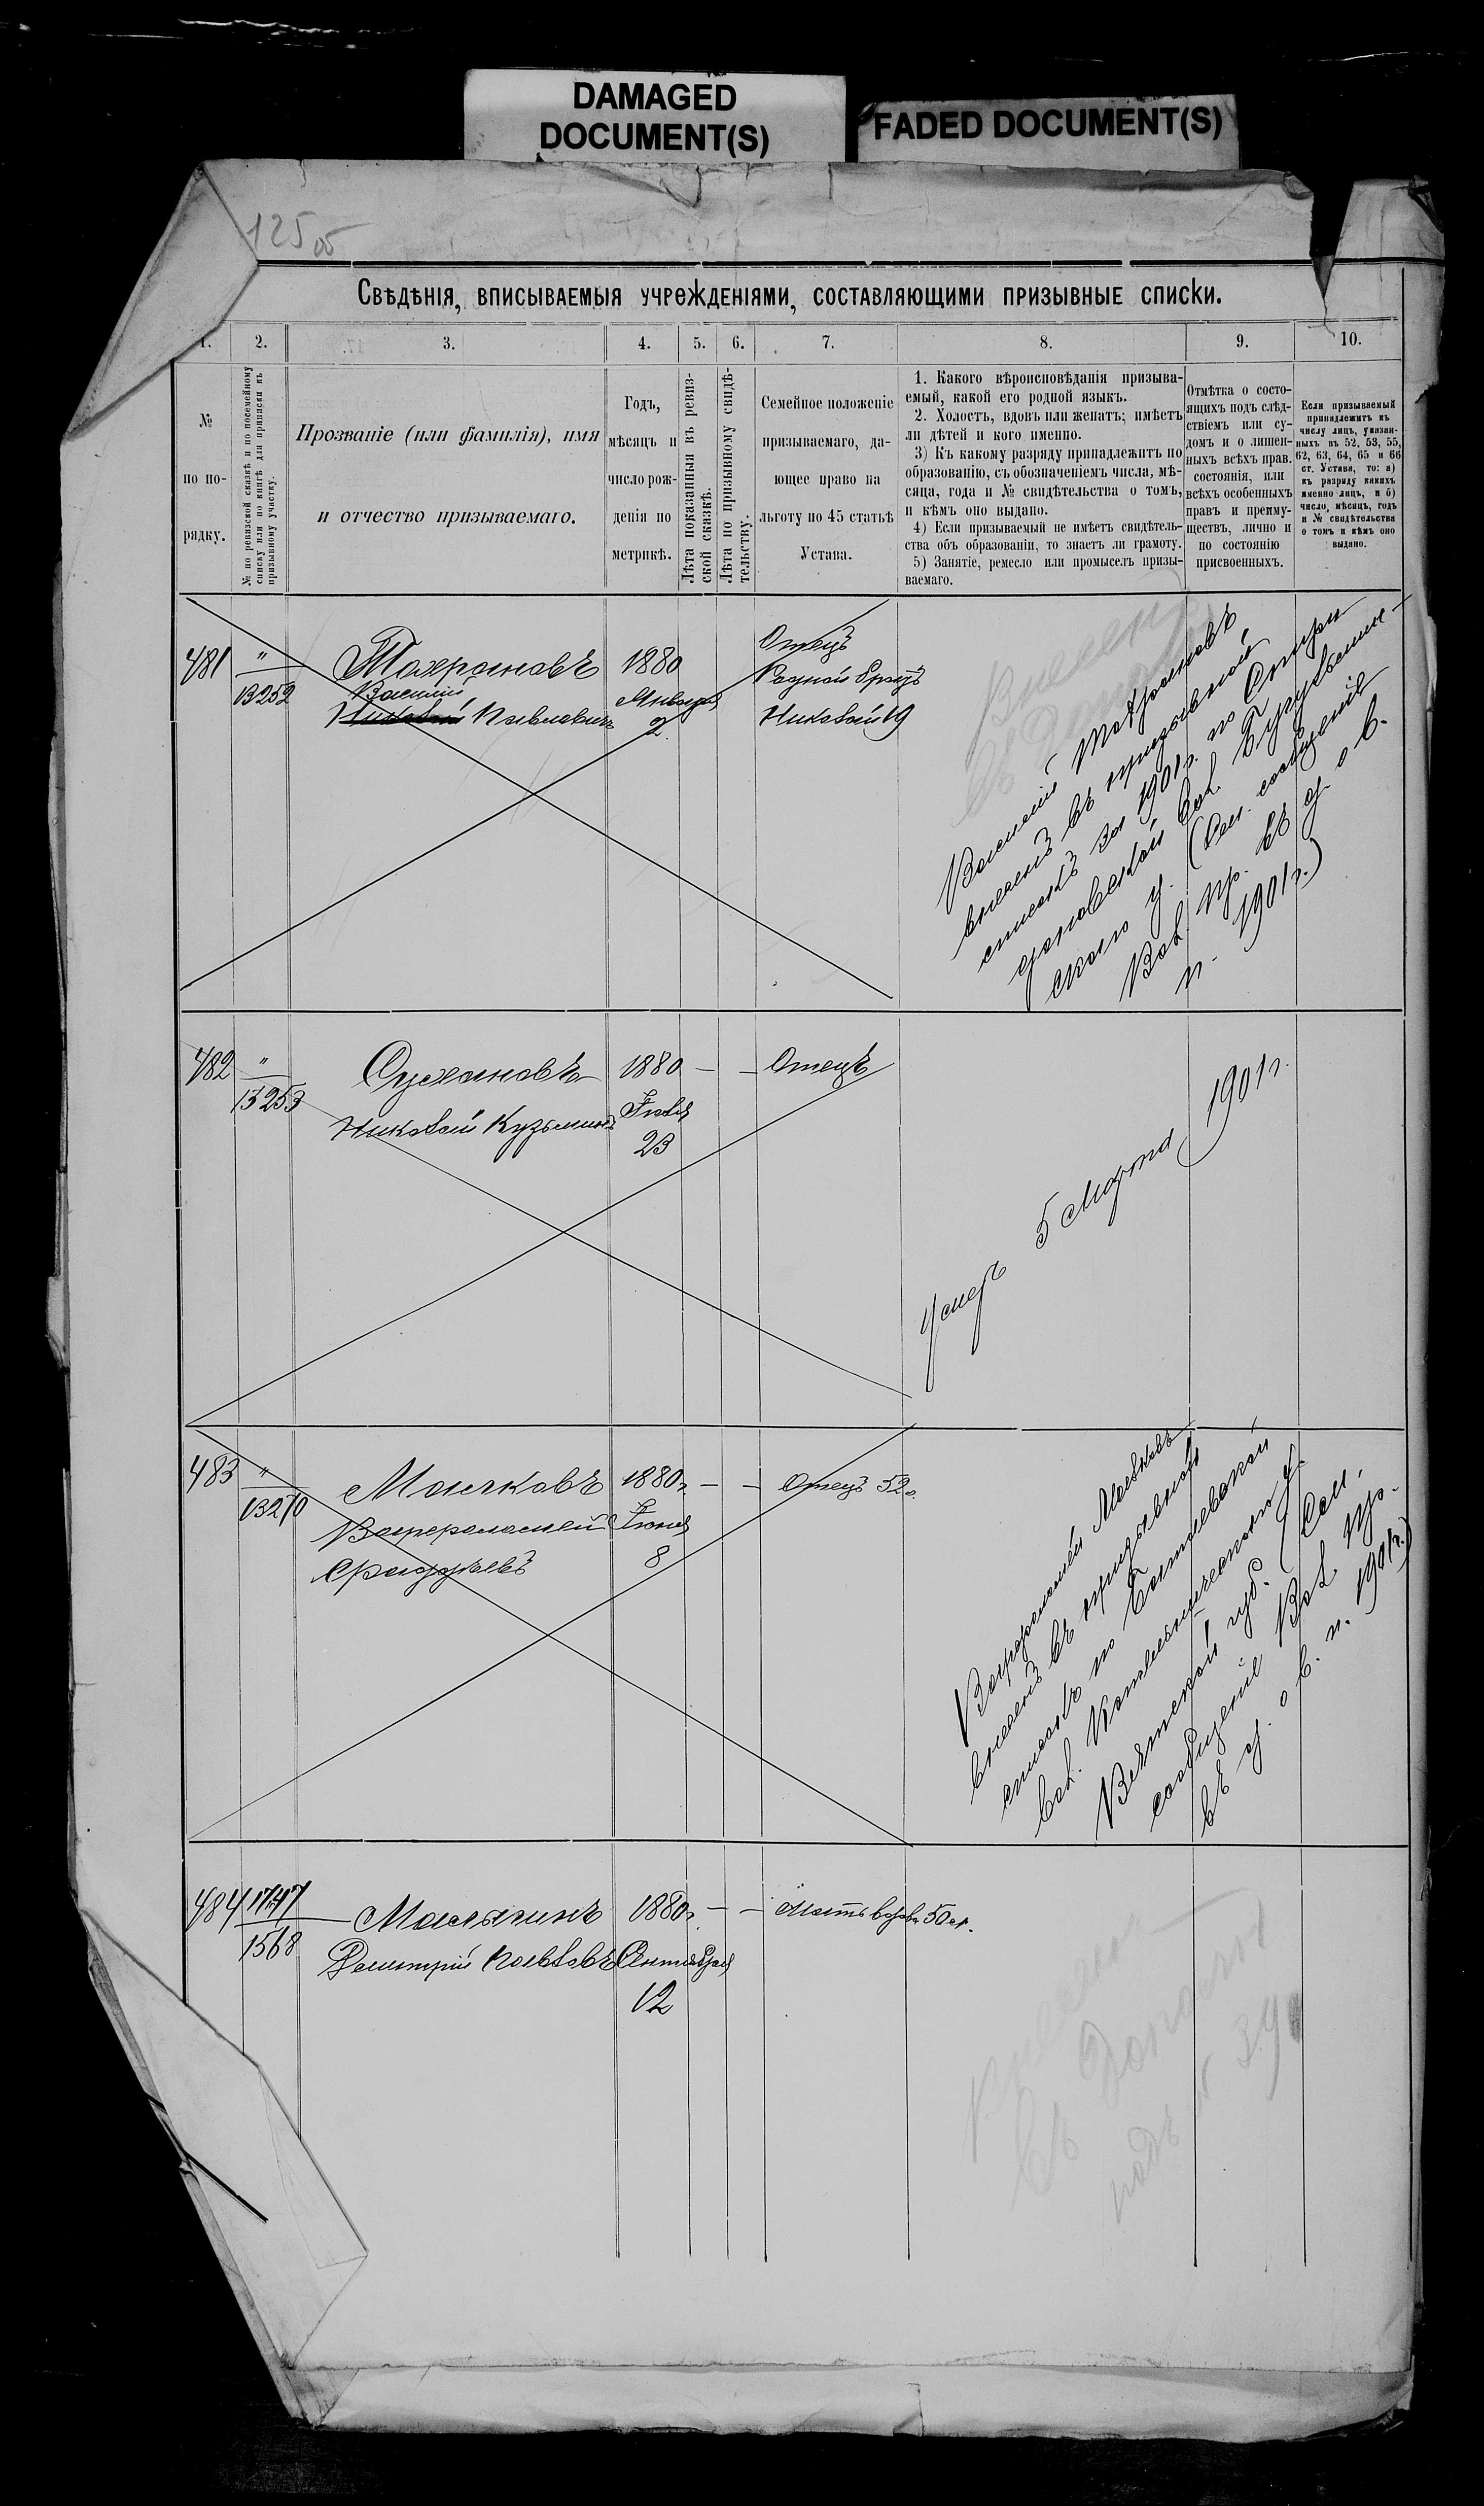 DAMAGED
DOCUMENT(S)
FADED DOCUMENT(S)
125
Свѣдѣнія, вписываемыя учрежденіями, составляющими призывные списки.
1. 2. 3. 4. 5. 6. 7. 8. 9. 10.
№
по по-
рядку.
№ по ревизской сказкѣ и по посемейному
списку или по книгѣ для приписки къ
призывному участку.
Прозваніе (или фамилія), имя
и отчество призываемаго.
Годъ,
мѣсяцъ и
число рож-
денія по
метрикѣ.
Лѣта показанныя въ ревиз-
ской сказкѣ.
Лѣта по призывному свидѣ-
тельству.
Семейное положеніе
призываемаго, да-
ющее право на
льготу по 45 статьѣ
Устава.
1. Какого вѣроисповѣданія призыва-
емый, какой его родной языкъ.
2. Холостъ, вдовъ или женатъ; имѣетъ
ли дѣтей и кого именно.
3) Къ какому разряду принадлежитъ по
образованію, съ обозначеніемъ числа, мѣ-
сяца, года и № свидѣтельства о томъ,
и кѣмъ оно выдано.
4) Если призываемый не имѣетъ свидѣтель-
ства объ образованіи, то знаетъ ли грамоту.
5) Занятіе, ремесло или промыселъ призы-
ваемаго.
Отмѣтка о состо-
ящихъ подъ слѣд-
ствіемъ или су-
домъ и о лишен-
ныхъ всѣхъ правъ
состоянія, или
всѣхъ особенныхъ
правъ и преиму-
ществъ, лично и
по состоянію
присвоенныхъ.
Если призываемый
принадлежитъ къ
числу лицъ, указан-
ныхъ въ 52, 53, 55,
62, 63, 64, 65 и 66
ст. Устава, то: а)
къ разряду какихъ
именно лицъ, и б)
число, мѣсяцъ, годъ
и № свидѣтельства
о томъ и кѣмъ оно
выдано.
481 "
13252
Василій
Николай Павловичъ
1880
Января
2
Отецъ
Родной братъ
Николай 19
Василій
внесенъ въ призывной
списокъ за 1901 г. по
вол. Бугурусланс-
скаго у. (сообщеніе
Вол. пр. въ у. о в.
п. 1901 г.)
482 "
13253
Сухановъ
Николай Кузьминъ
1880 — —
Іюля
23
Отецъ
Умеръ 5 Марта 1901 г.
483 "
13270
Варфоломей
1880 г. — —
Іюня
8
Отецъ 52 г.
Варфоломей
внесенъ въ призывной
списокъ по
вол.
Вятской губ. (
сообщеніе Вол. пр.
въ у. о в. п. 1901 г.)
484 1747
1568
Малыгинъ
Дмитрій Павловъ
1880 г. — —
Сентября
12
Мать вдова 50 л.
внесенъ
въ дополн.
подъ № 39